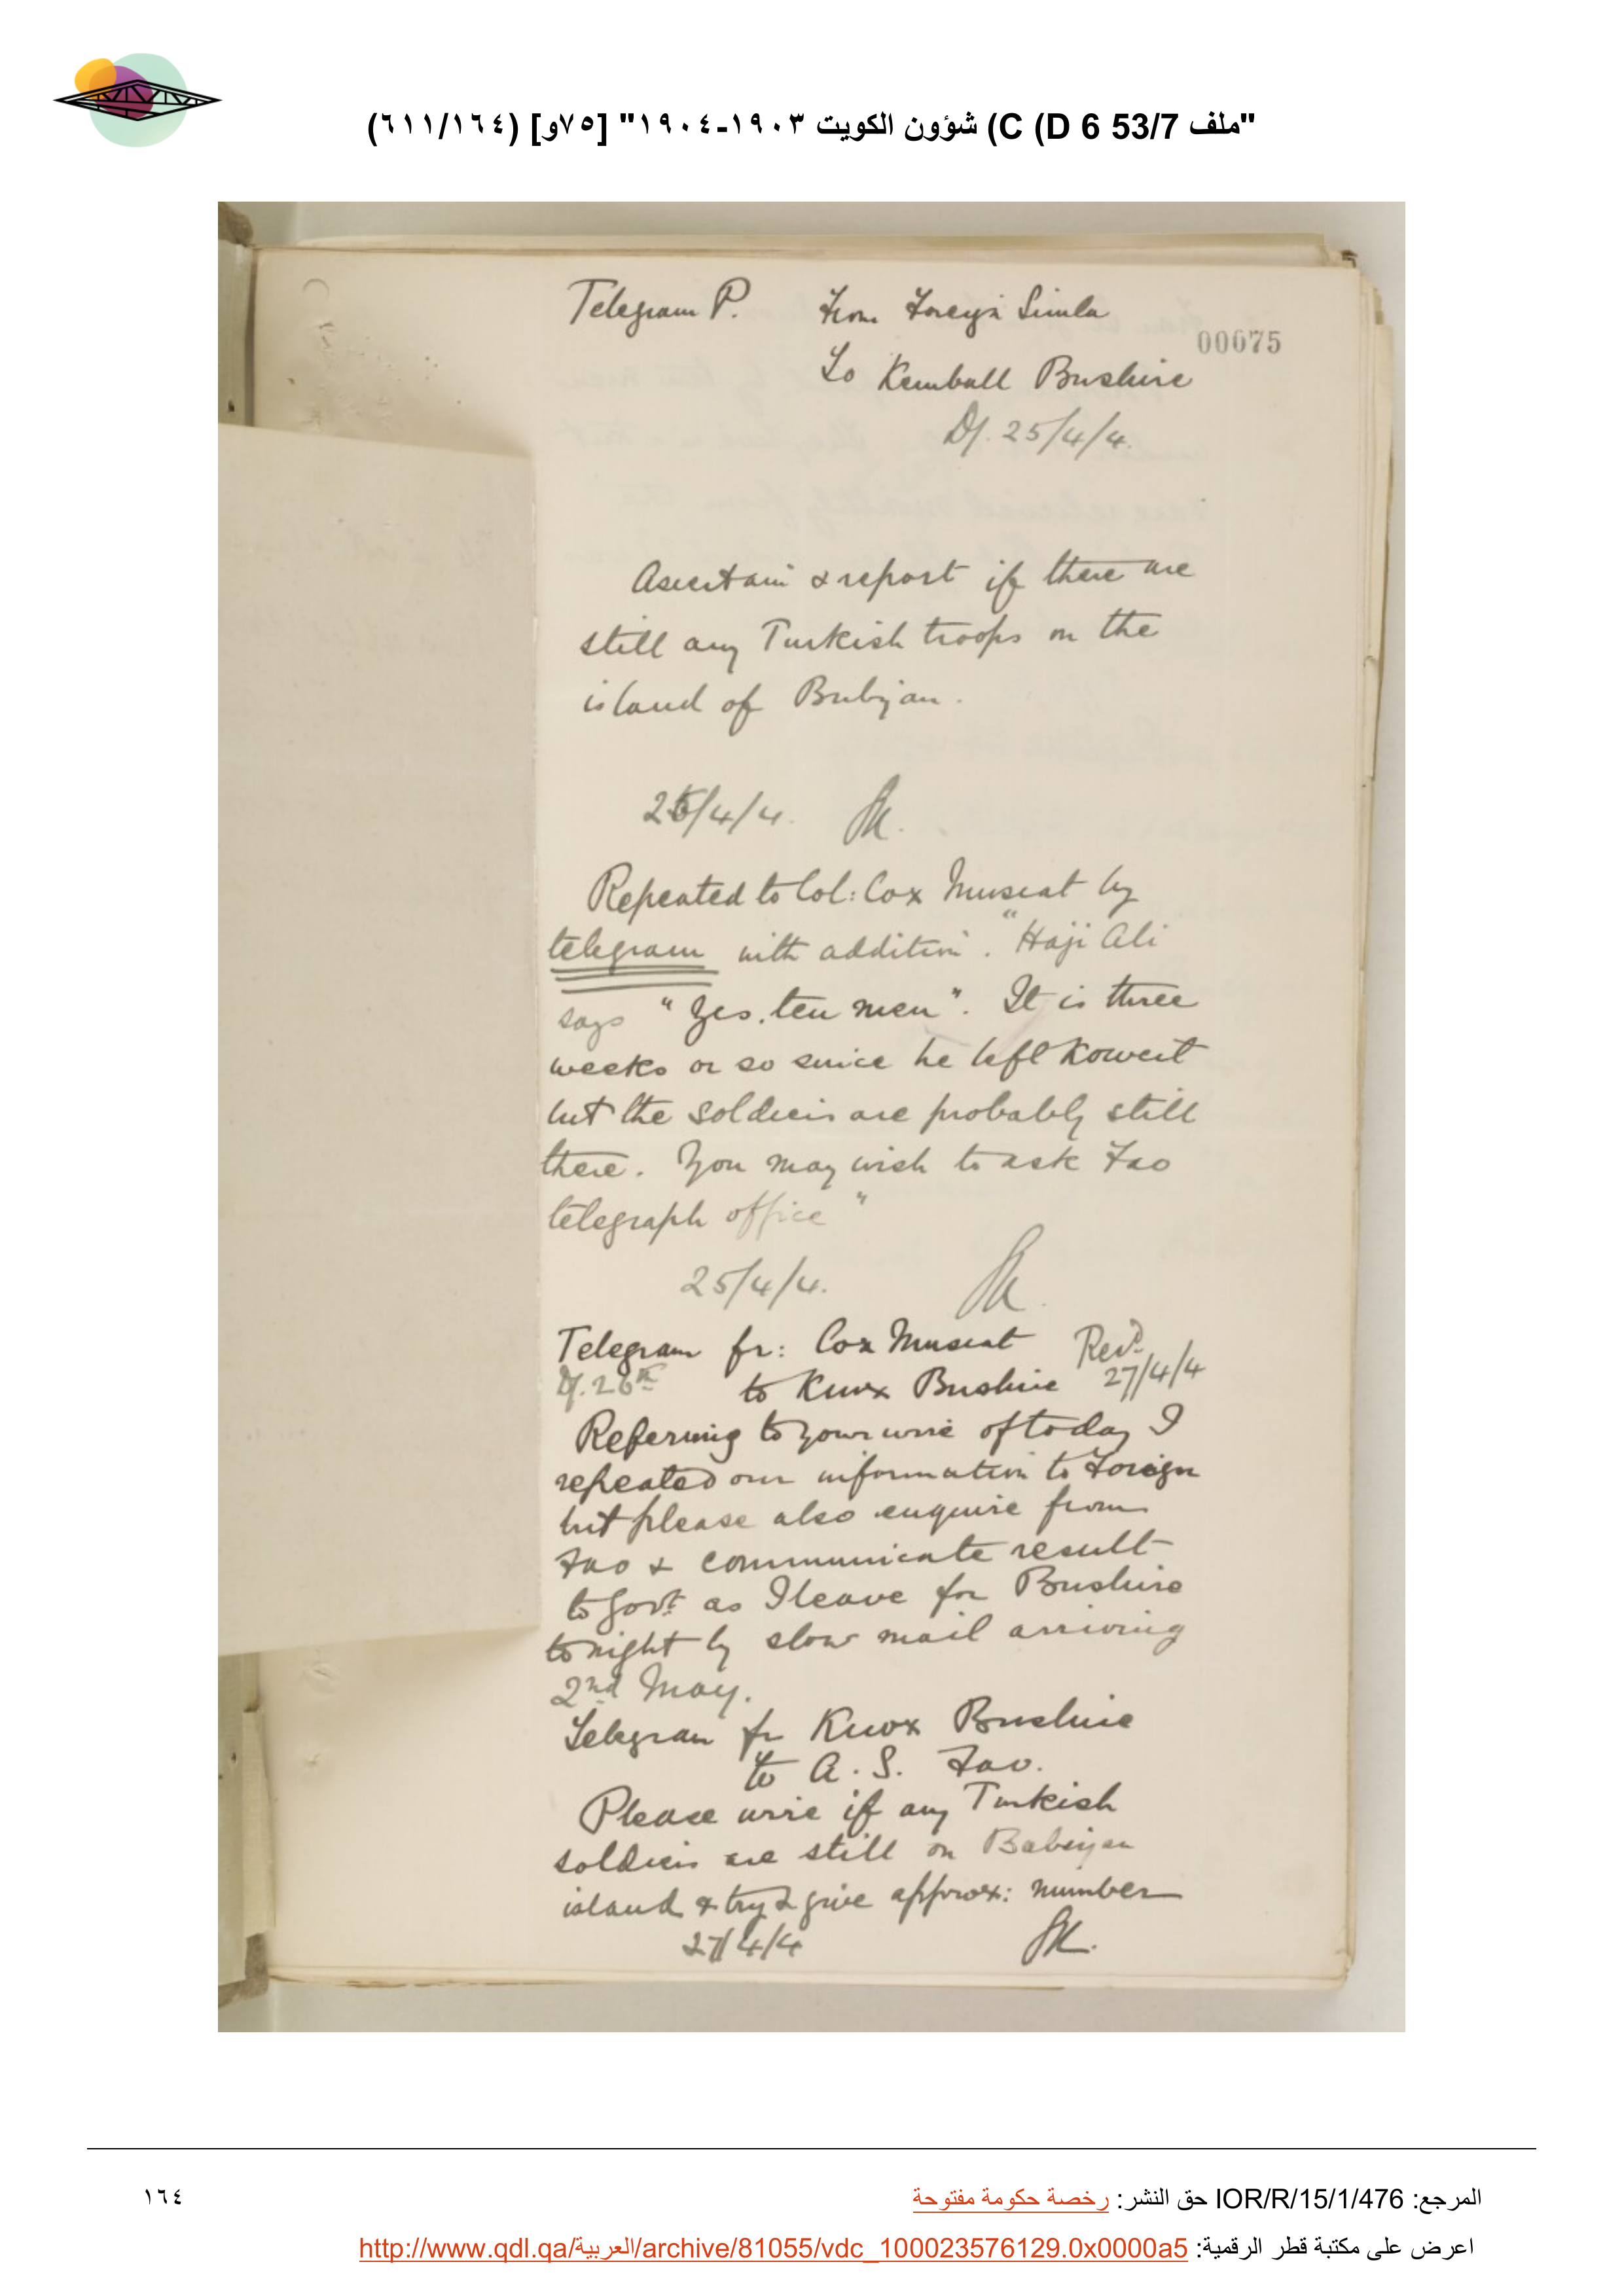 "ملف 53/7 C (D 6) شؤون الكويت ١٩٠٣-١٩٠٤" [٧٥و] (٦١١/١٦٤)
Telegram P. From Foreign Simla
00075
To Kemball Bushire
D/. 25/4/4.
Ascertain & report if there are
still any Turkish troops on the
island of Bubiyan.
25/4/4. SK.
Repeated to Col: Cox Muscat by
telegram with addition. "Haji Ali
says "Yes. ten men". It is three
weeks or so since he left Koweit
but the soldiers are probably still
there. You may wish to ask Fao
telegraph office"
25/4/4. SK.
Telegram fr: Cox Muscat Recd.
D/. 26th to Knox Bushire 27/4/4
Referring to your wire of today I
repeated our information to Foreign
but please also enquire from
Fao & communicate result
to Govt as I leave for Bushire
tonight by slow mail arriving
2nd May.
Telegram fr Knox Bushire
to A. S. Fao.
Please wire if any Turkish
soldiers are still on Babiyan
island & try & give approx: number
27/4/4 SK.
المرجع: IOR/R/15/1/476 حق النشر: رخصة حكومة مفتوحة
١٦٤
اعرض على مكتبة قطر الرقمية: http://www.qdl.qa/العربية/archive/81055/vdc_100023576129.0x0000a5